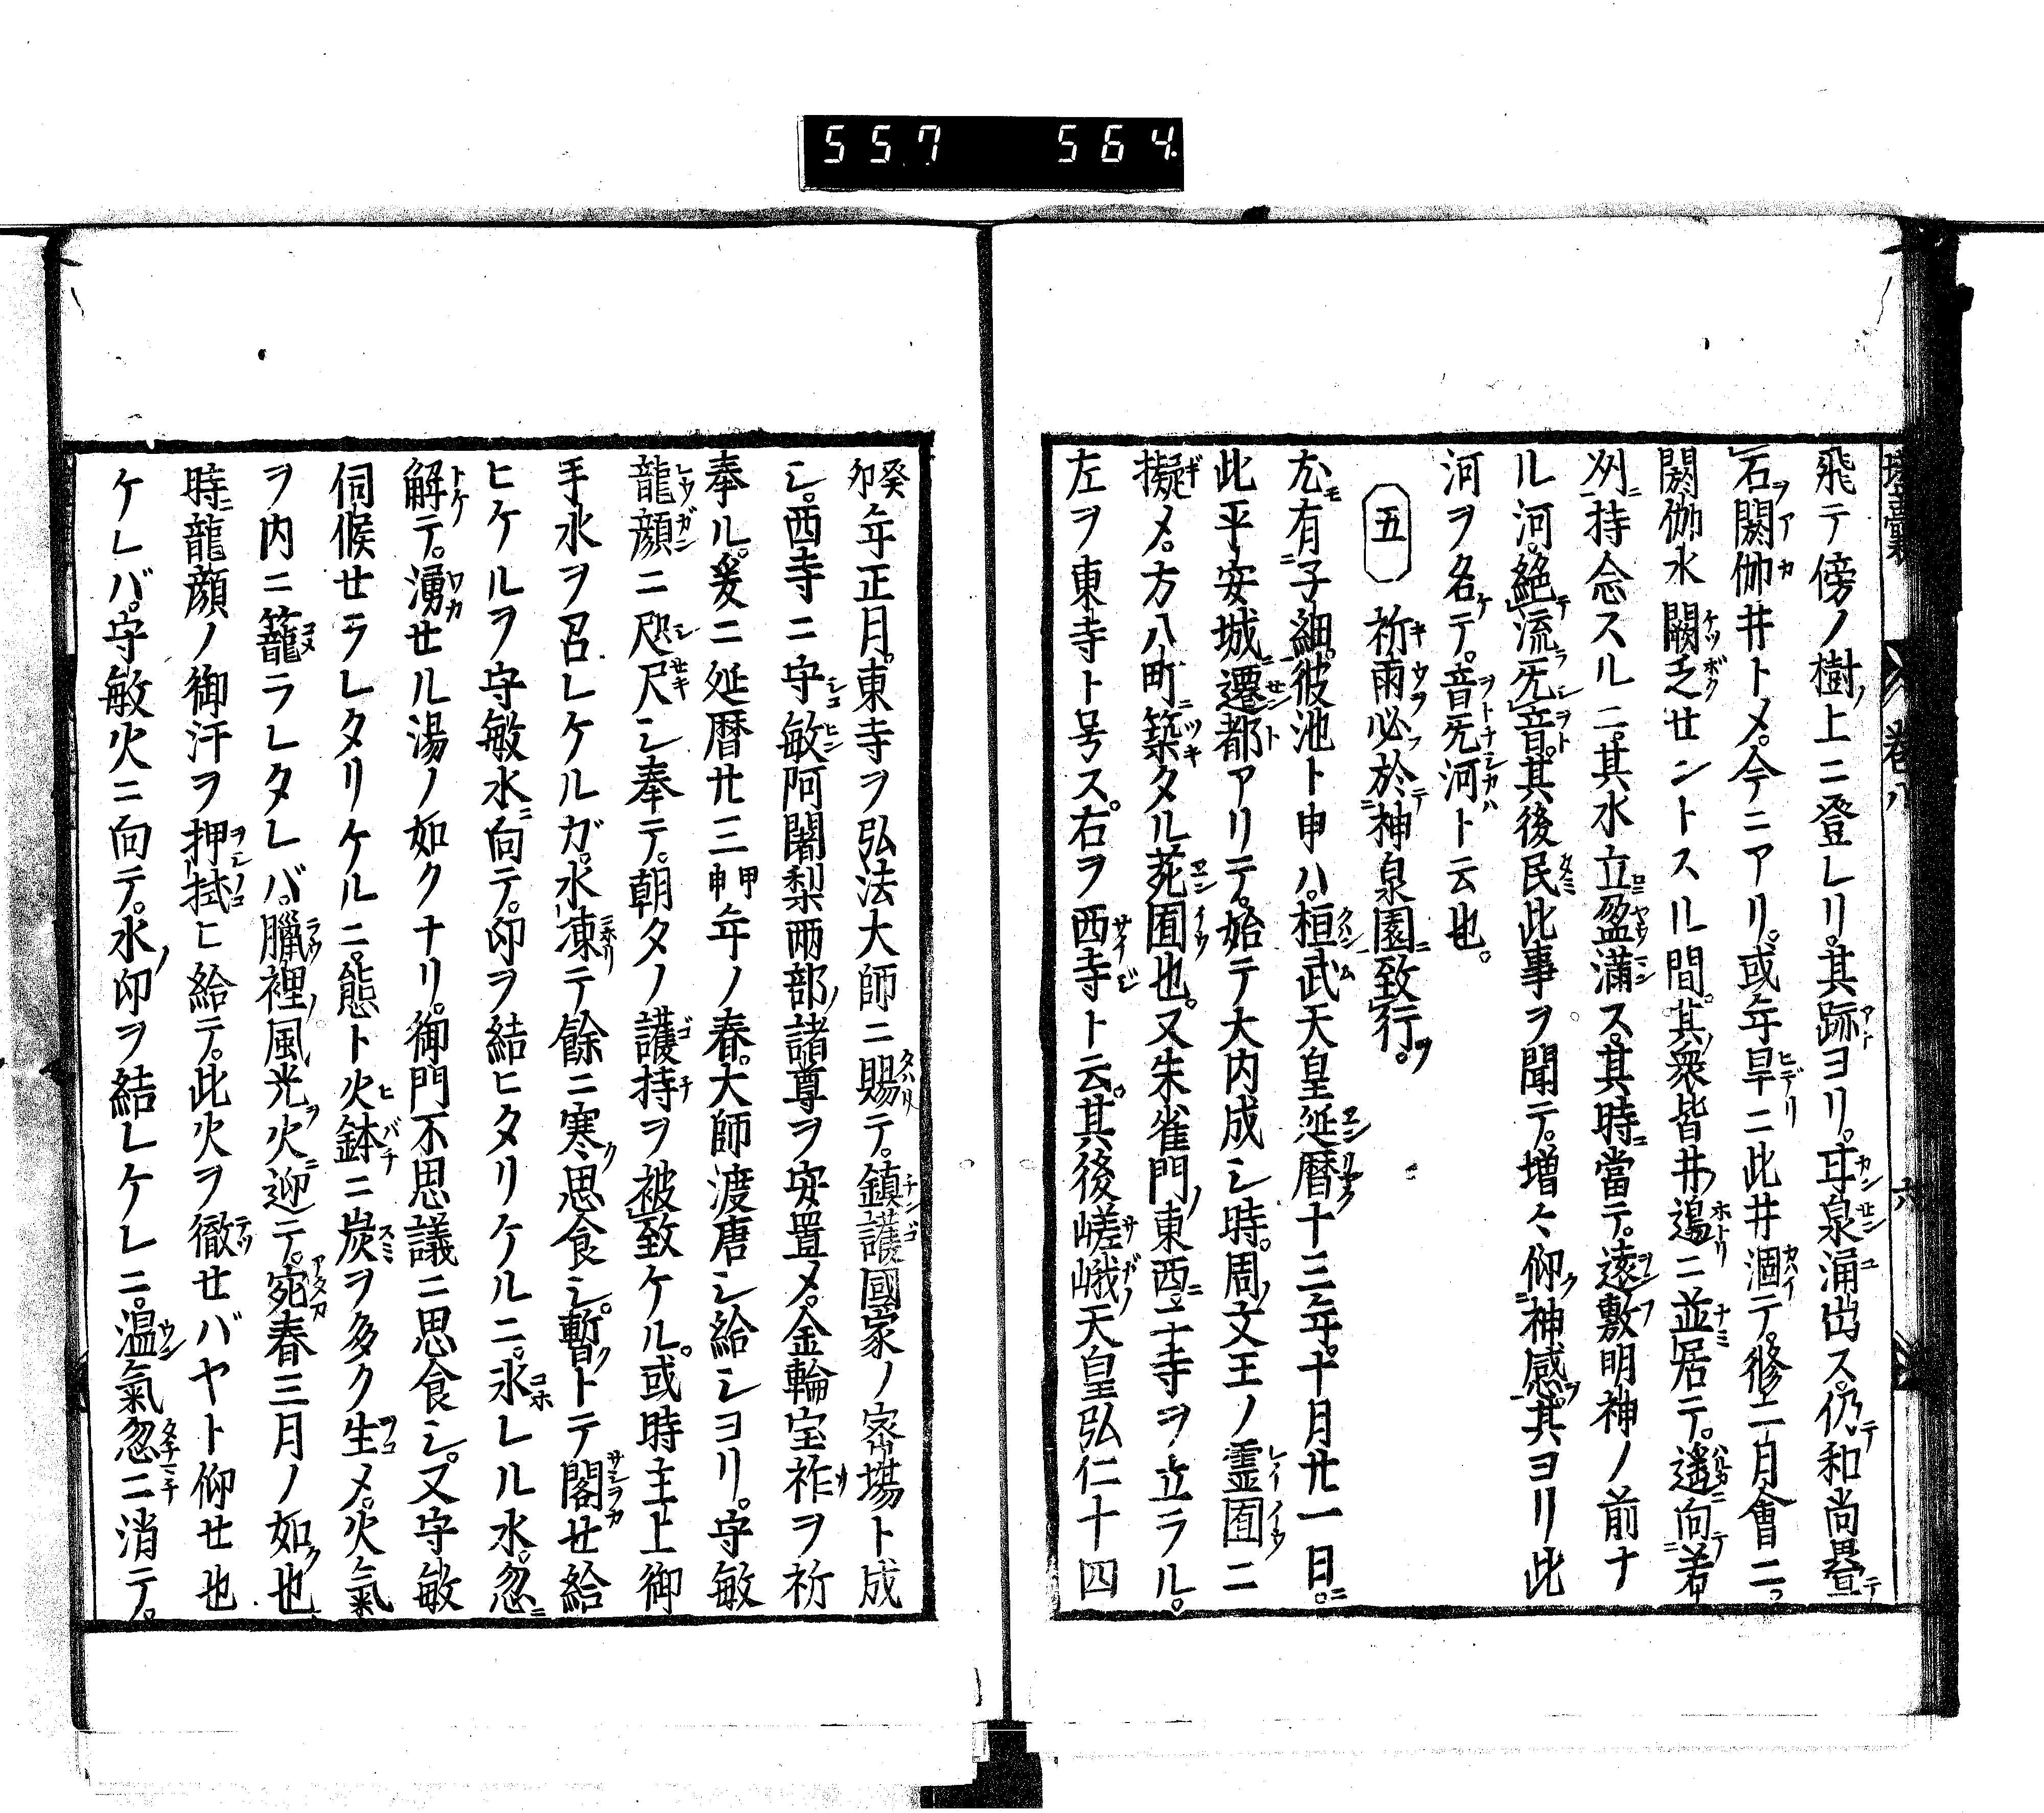 557 564
壒囊 卷八 六
飛テ傍ノ樹ノ上ニ登レリ。其跡ヨリ。耳泉涌出ス。仍テ和尚疊テ
石ヲ閼伽井トメ。今ニアリ。或年旱ニ此井涸テ。修二月會ニ。
閼伽水闕乏せントスル間。其ノ衆皆井ノ邉ニ並居テ。遥ニ向テ若
州ニ持念スルニ。其水立盈滿ス。其時ニ當テ。遠敷明神ノ前ナ
ル河。絶テ流ラ旡シ音ト。其後民此事ヲ聞テ。増々仰ク神感ヲ。其ヨリ此
河ヲ名ケテ。音旡河ト云也。
五 祈雨必於神泉園致行。
尤モ有子細。彼池ト申ハ。桓武天皇延暦十三年。十月廿一日ニ。
此平安城ニ遷都アリテ。始テ大内成シ時。周ノ文王ノ霊囿ニ
擬メ。方八町ニ築タル苑囿也。又朱雀門ノ東西ニ二寺ヲ立ラル。
左ヲ東寺ト号ス。右ヲ西寺ト云。其後嵯峨天皇弘仁十四
癸卯年正月。東寺ヲ弘法大師ニ賜テ。鎮護國家ノ密場ト成
シ。西寺ニ守敏阿闍梨兩部ノ諸尊ヲ安置メ。金輪宝祚ヲ祈
奉ル。爰ニ延暦廿三甲申年ノ春。大師渡唐シ給シヨリ。守敏
龍顔ニ咫尺シ奉テ。朝タノ護持ヲ被致ケル。或時主上御
手水ヲ召レケルガ。水凍テ餘ニ寒ク思食シ。暫クトテ閣せ給
ヒケルヲ守敏水ニ向テ。印ヲ結ヒタリケルニ。氷レル水。忽ニ
解テ。湧せル湯ノ如クナリ。御門不思議ニ思食シ。又守敏
伺候せラレタリケルニ。態ト火鉢ニ炭ヲ多ク生メ。火氣
ヲ内ニ籠ラレタレバ。臘裡ノ風光ヲ火ニ迎テ。宛春三月ノ如ク也。
時ニ龍顔ノ御汗ヲ押拭ヒ給テ。此火ヲ徹せバヤト仰せ也
ケレバ。守敏火ニ向テ。水ノ印ヲ結レケレニ。温氣忽ニ消テ。